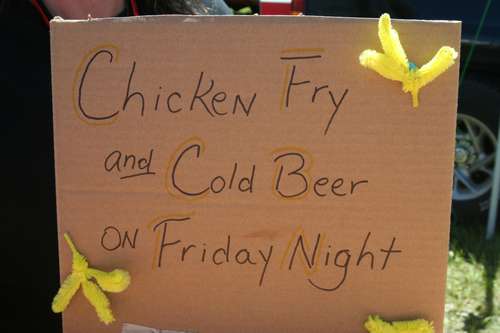 Chicken Fry
and Cold Beer
on Friday Night